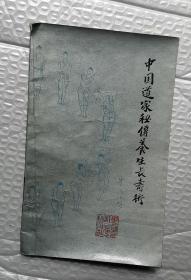 中国道家秘传养生长寿术